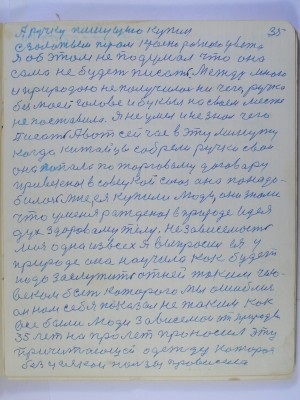 А ручку пишущию купил
с золотым пером красно разного цвета
Я об этом не подумал что она
сама не будет писать. Между мною
и природою не получилося ни чего, ряжа
бы моей голове и буквы на своем месте
не поставила. Я не умел и не знал чего
писать. А вот сей час в эту минуту
когда китайцы собрели ручки свои
она попала по торговому договору
привезена в советский союз она понадо-
билася мне я купил Люди, они знали
что у меня раждена в природе идея
дух здоровому телу. Независемость
моя одна из всех я выпросил ея у
природе она научила как будет
надо заслужить от ней таким чело-
веком быть которого мы ошибка
он нам себя показал не таким как
все были люди зависемы от природы
35 лет на пролет проносил эту
причитающий одежду которая
без всякой пользы провисела
35